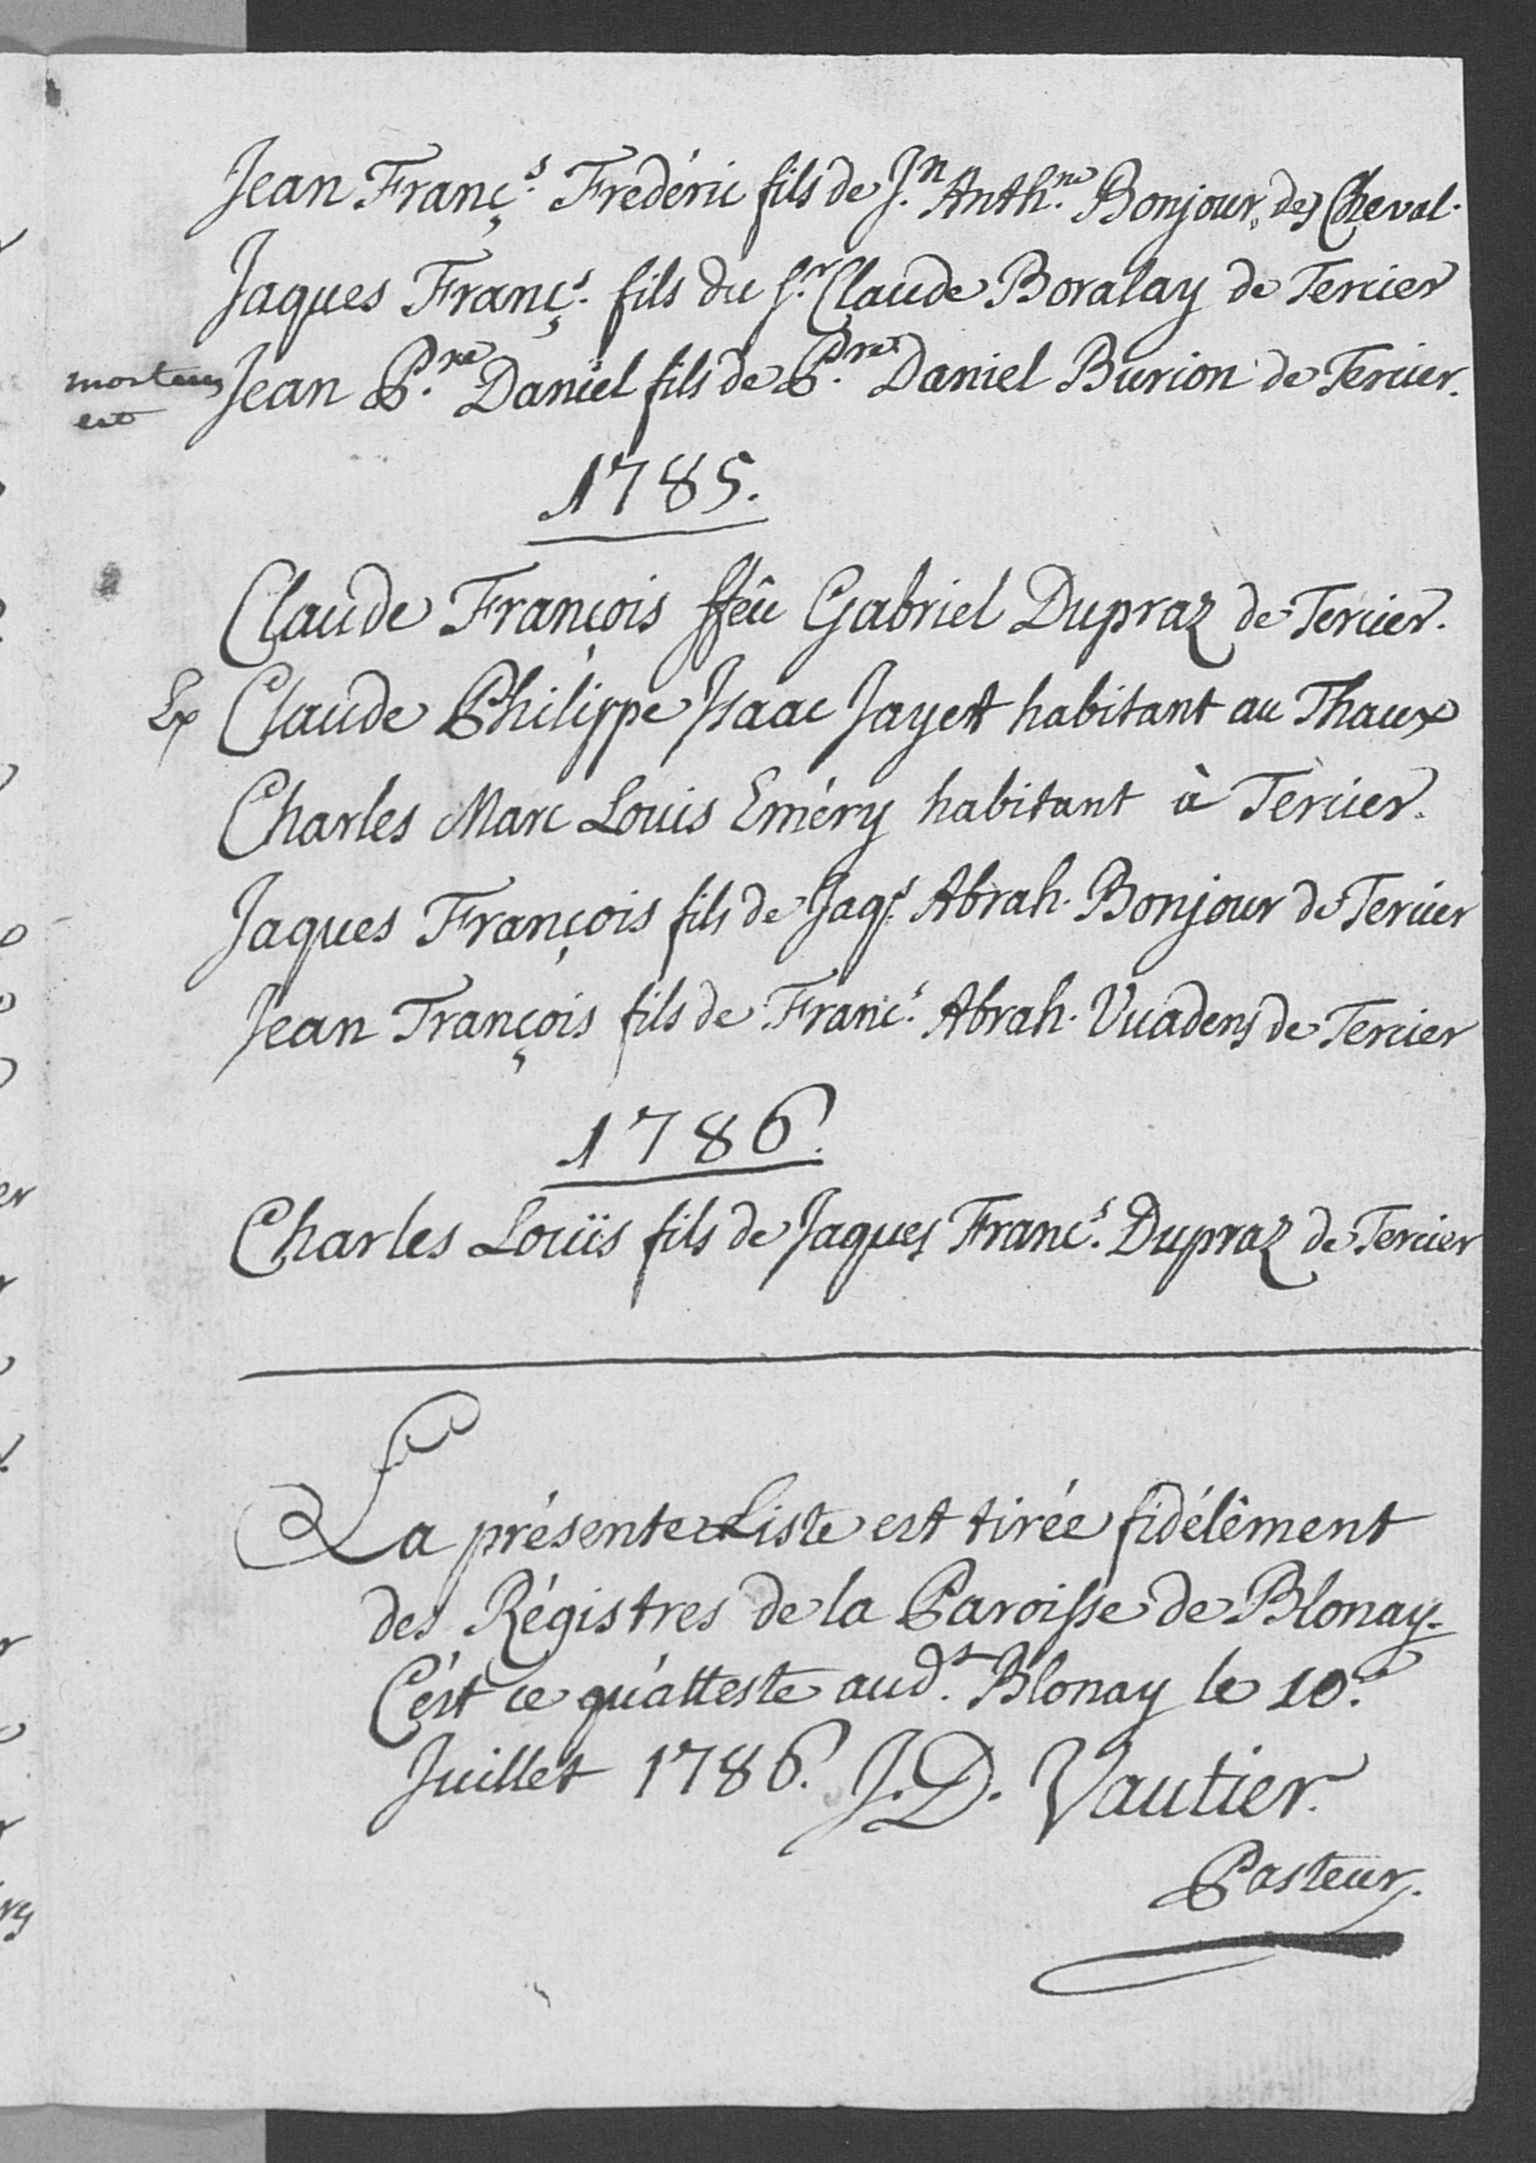 Jean Franç.s Frédéric fils de J.n Anth.ne Bonjour, des Cheval.
Jaques Franç.s fils du S.r Claude Boralay de Tercier
mortuus est Jean P.re Daniel fils de P.re Daniel Burion de Tercier.
1785.
Claude François ffeû Gabriel Dupraz de Tercier.
Ex Claude Philippe Isaac Jayet habitant au Thaux
Charles Marc Louis Eméry habitant à Tercier.
Jaques François fils de Jaq.s Abrah. Bonjour de Tercier
Jean François fils de Franc.s Abrah. Vuadens de Tercier
1786.
Charles Louïs fils de Jaques Franc.s Dupraz de Tercier
La présente Liste est tirée fidélêment
des Régistres de la Paroisse de Blonay.
C'ést ce qu'átteste aud.t Blonay le 10.e
Juillet 1786. J. D. Vautier.
Pasteur.